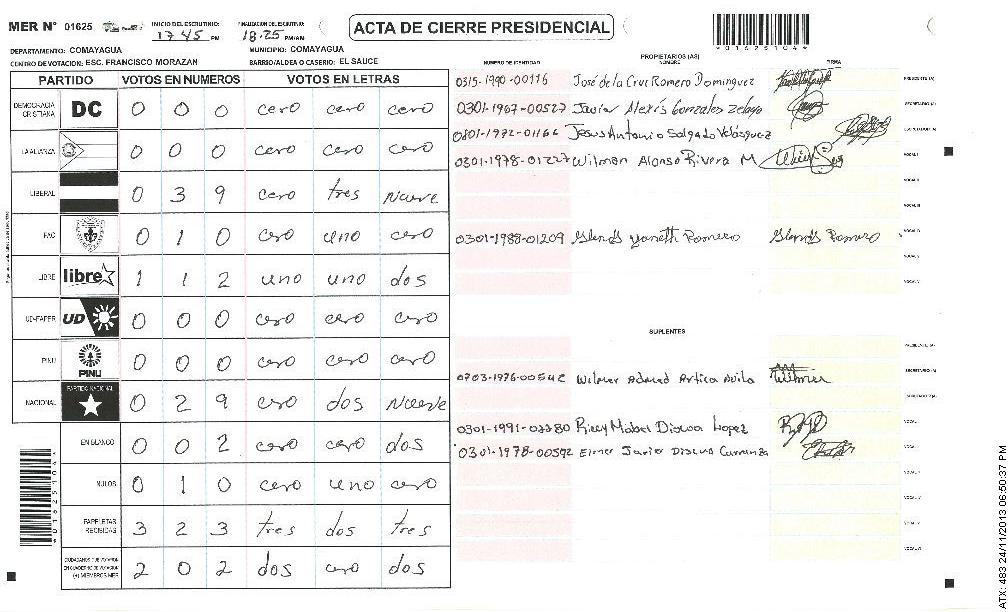 MER N° 01625
INICIO DEL ESCRUTINIO: 17 45 PM
FINALIZACION DEL ESCRUTINIO: 18:25 PM/AM
ACTA DE CIERRE PRESIDENCIAL
*01625104*
DEPARTAMENTO: COMAYAGUA
MUNICIPIO: COMAYAGUA
CENTRO DE VOTACION: ESC. FRANCISCO MORAZAN
BARRIO/ALDEA O CASERIO: EL SAUCE
PARTIDO VOTOS EN NUMEROS VOTOS EN LETRAS
DEMOCRACIA CRISTIANA DC 0 0 0 cero cero cero
LA ALIANZA 0 0 0 cero cero cero
LIBERAL 0 3 9 cero tres Nueve
PAC 0 1 0 cero uno cero
LIBRE libre 1 1 2 uno uno dos
UD-FAPER UD 0 0 0 cero cero cero
PINU PINU 0 0 0 cero cero cero
NACIONAL PARTIDO NACIONAL 0 2 9 cero dos Nueve
EN BLANCO 0 0 2 cero cero dos
NULOS 0 1 0 cero uno cero
PAPELETAS RECIBIDAS 3 2 3 tres dos tres
CIUDADANOS QUE VOTARON EN CUADERNO DE VOTACION (+) MIEMBROS MER 2 0 2 dos cero dos
PROPIETARIOS (AS)
NUMERO DE IDENTIDAD NOMBRE FIRMA
0315-1990-00116 José de la Cruz Romero Dominguez PRESIDENTE (A)
0301-1967-00527 Javier Alexis Gonzales Zelaya SECRETARIO (A)
0801-1992-01166 Jesus Antonio Salgado Velásquez ESCRUTADOR (A)
0301-1978-01227 Wilman Alonso Rivera M VOCAL I
VOCAL II
VOCAL III
0301-1988-01209 Glends Yaneth Romero Glends Romero VOCAL IV
VOCAL V
VOCAL VI
SUPLENTES
PRESIDENTE (A)
0703-1976-00542 Wilmer Adned Artica Avila Wilmer SECRETARIO (A)
0301-1991-02280 Ricey Mabel Discua Lopez
0301-1978-00592 Elmer Javier Discua
*01625104*
ATX: 483 24/11/2013 06:50:37 PM